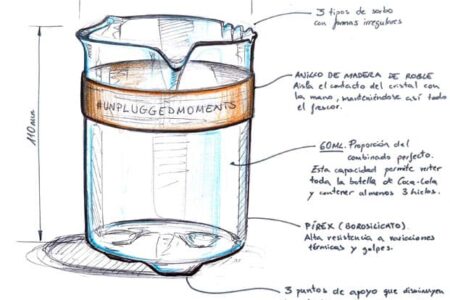 3 tipos de sorbo
con formas irregulares
ANILLO DE MADERA DE ROBLE
Aisla el contacto del cristal con
la mano, manteniéndose así todo
el frescor.
#UNPLUGGEDMOMENTS
110mm
60ML. Proporción del
combinado perfecto.
Esta capacidad permite verter
toda la botella de Coca-Cola
y contener al menos 3 hielos.
PÍREX (BOROSILICATO).
Alta resistencia a variaciones
térmicas y golpes.
3 puntos de apoyo que disminuyen